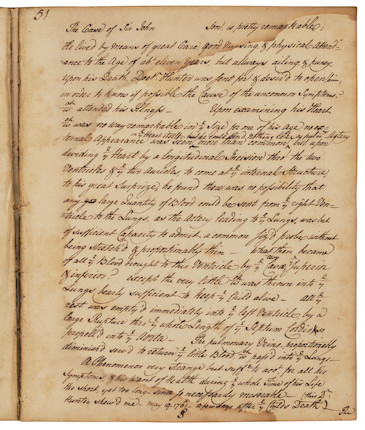 51
The Case of Sir John Son is pretty remarkable,
He lived by means of great Care, good Nursing & physical Attend-
-ance to the Age of abt. eleven Years, but always ailing & puny
upon his Death Doctr. Hunter was sent for & desir'd to open him
in order to know if possible the Cause of the uncommon Symptoms
wch. attended his Illness. Upon examining his Heart
wch. was no way remarkable in ye Size to one of his age nor ex-
ternal Appearance was seen more than common, but upon
dividing ye Heart by a longitudinal Incision thro' the two
Ventricles & ye two Auricles to come at ye internal Structure
to his great Surprize, he found there was no possibility that
any large Quantity of Blood could be sent from ye right Ven-
tricle to the Lungs, as the Artery leading to ye Lungs, was but
of sufficient Capacity to admit a common probe without
being stretch'd & proportionably thin - what then became
of all ye Blood brought to this Ventricle by ye Cava Superior
& inferior? except the very little wch. was thrown into ye
Lungs bearly sufficient to keep ye Child alive - all ye
rest was empty'd immediately into ye left Ventricle by a
large Rupture thro' ye whole Length of ye Septum Cordis, &
propell'd into ye Aorta - The pulmonary Veins, proportionably
diminish'd serv'd to return ye little Blood wch. pass'd into ye Lungs -
A Phenomenon very strange but sufft. to acct. for all his
Symptoms, & his want of Health during ye whole Time of his Life
the short, yet too long Time so necessarily miserable (this Dr.
Hunter shew'd me May 19. 176 a few days after ye Child's Death)